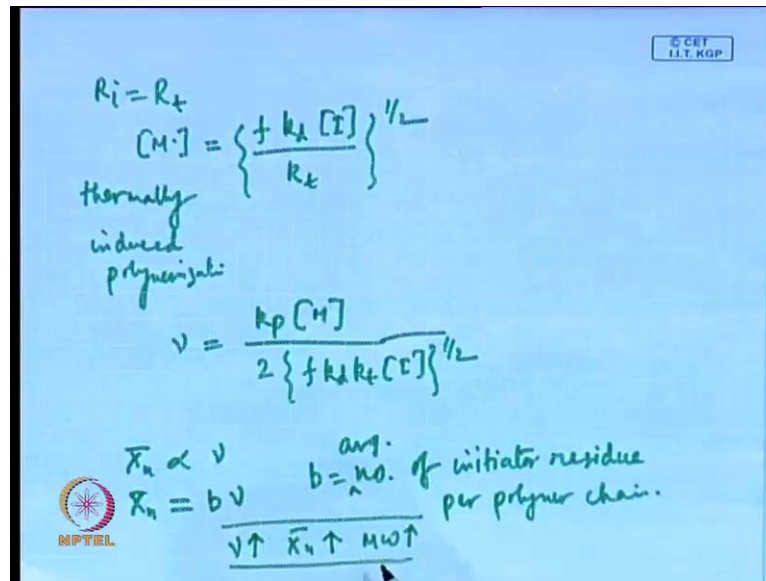 © CET
I.I.T. KGP
Ri = Rt
[M·] = { f kd [I] / kt }^1/2
thermally
induced
polymerizati
ν = kp [M] / 2 { f kd kt [I] }^1/2
X̄n ∝ ν
X̄n = b ν b = avg. no. of initiator residue
per polymer chain.
ν↑ X̄n ↑ MW↑
NPTEL